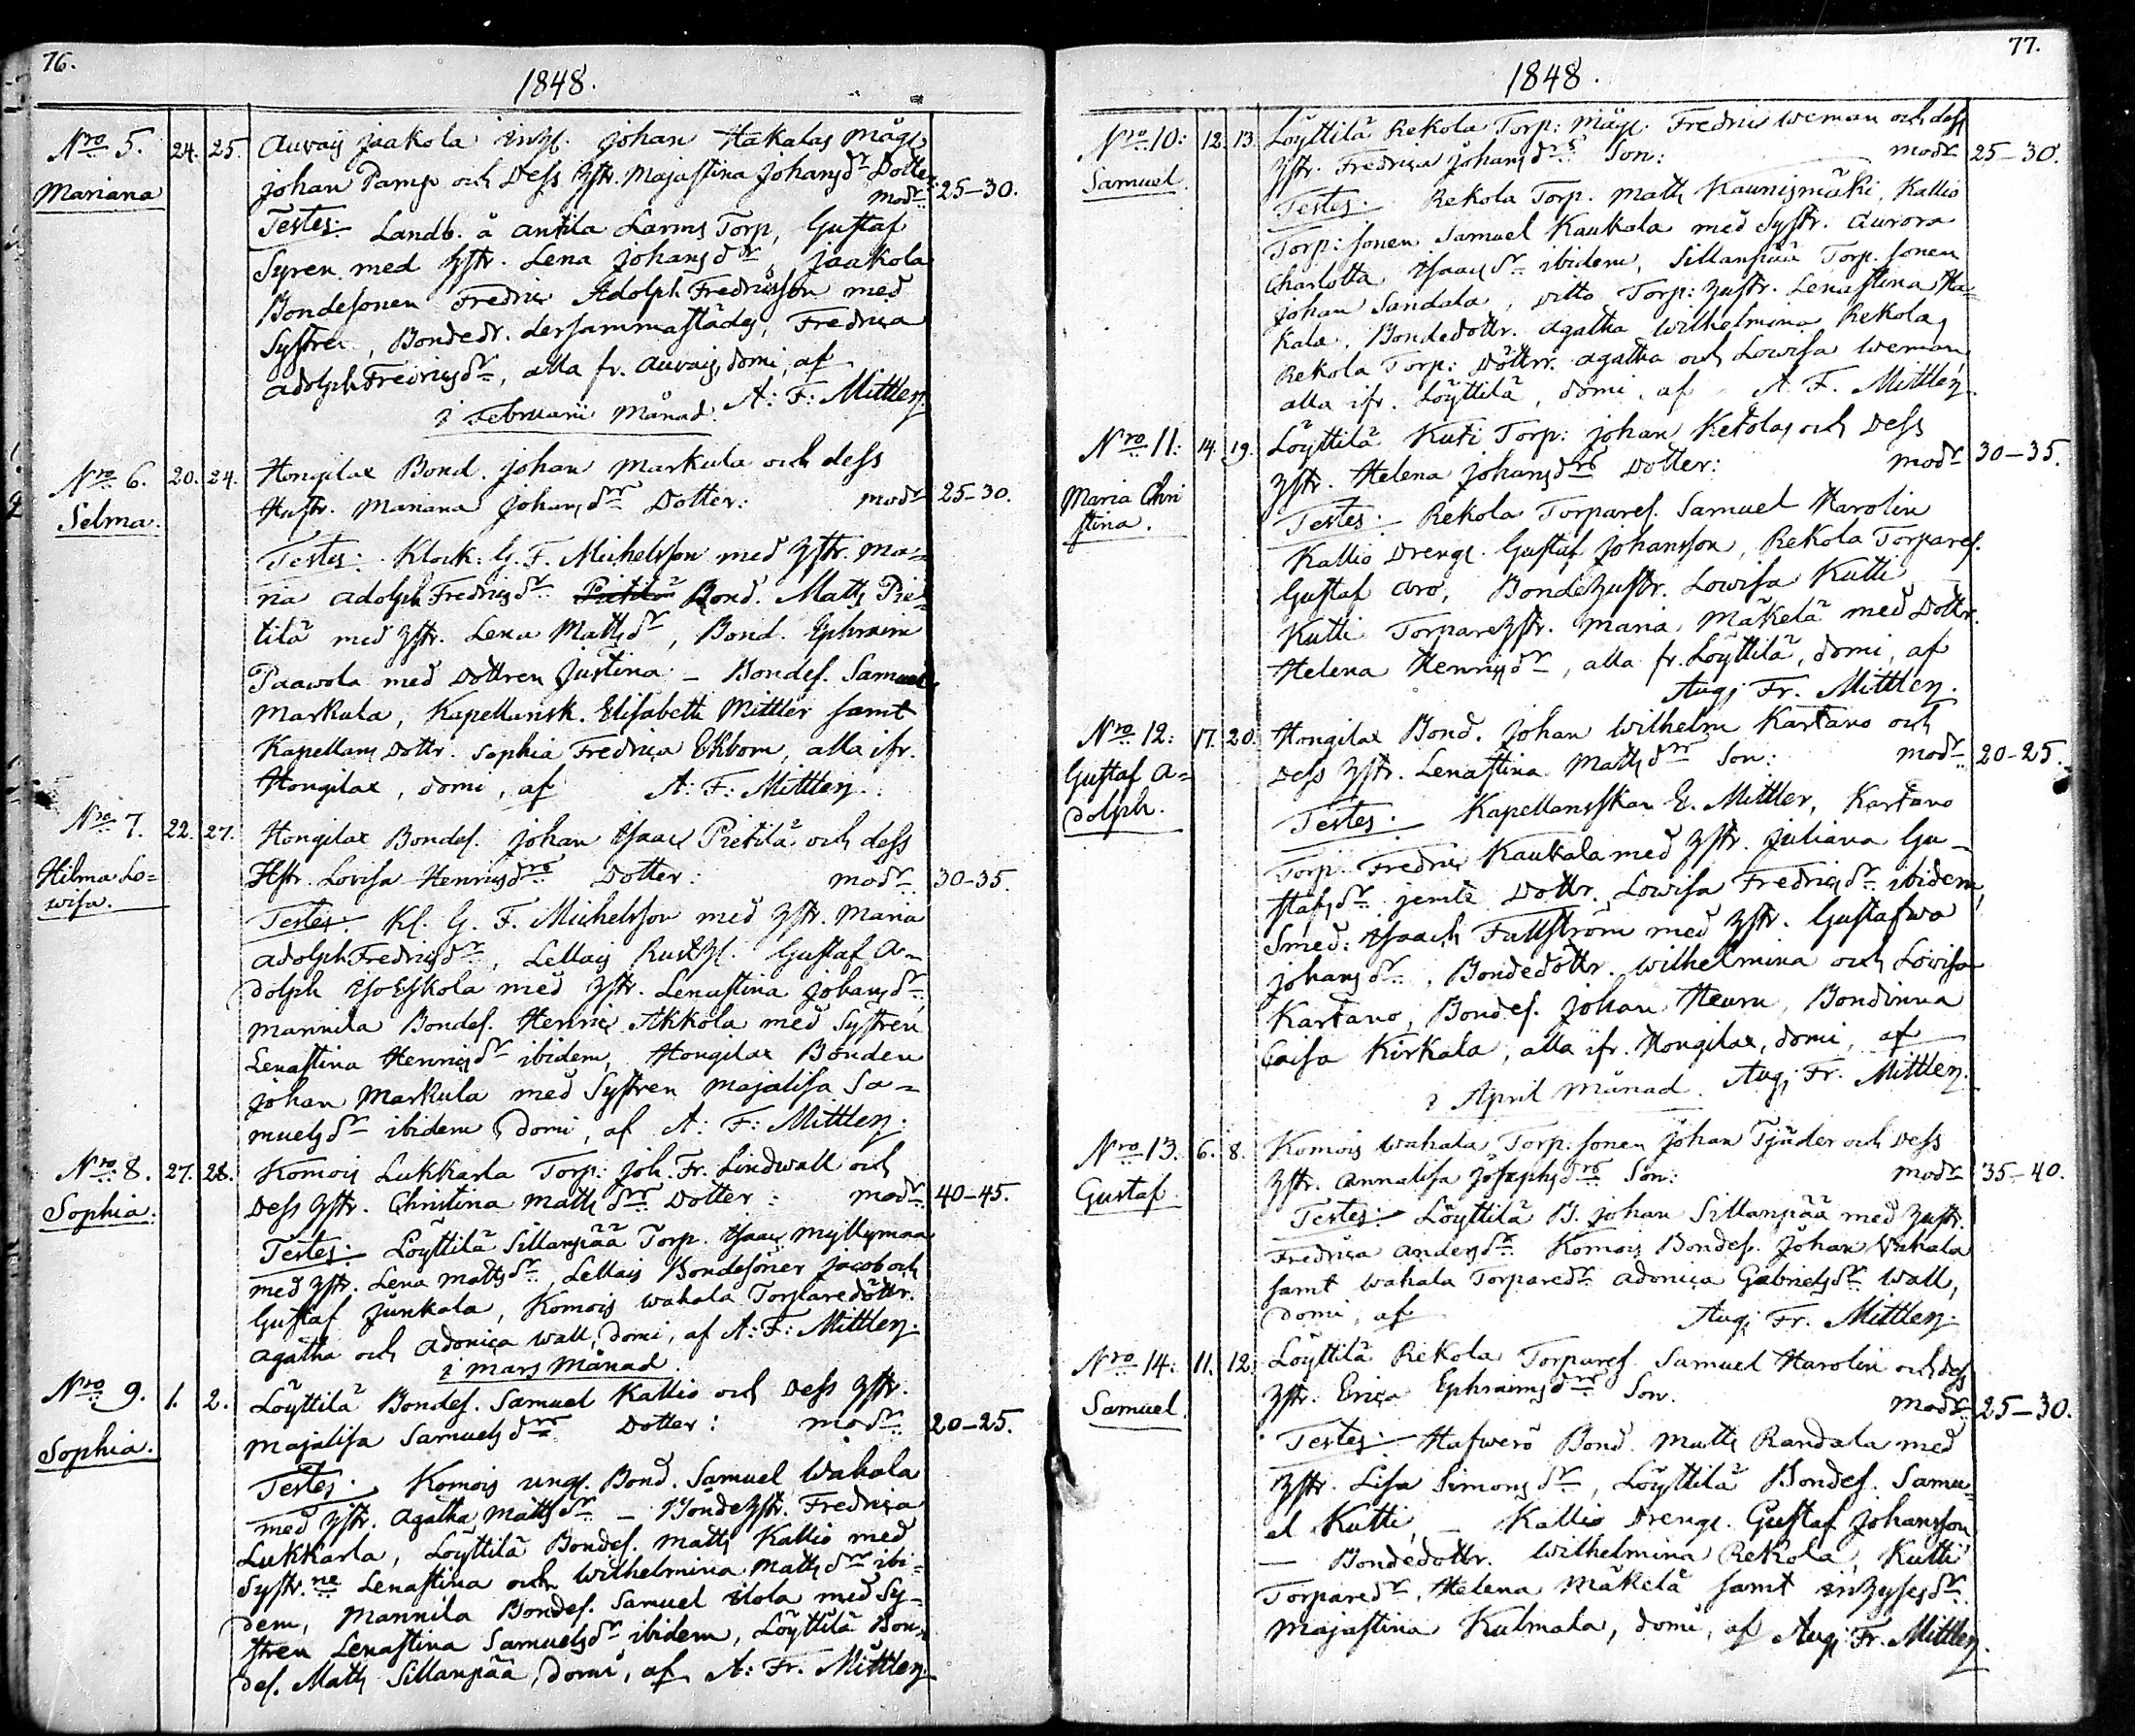 76.
1848.
Nro 5. 24. 25. Auvais Jaakola inh. Johan Hakalas mågs
Mariana Johan Pamp och Dess Hstr. Majastina Johansdr Dotter
modr 25-30.
Testes: Landb. å Antila Larms Torp, Gustaf
Syren med Hstr. Lena Johansdr, Jaakola
Bondesonen Fredric Adolph Fredricsson med
Systren, Bondedr. dersammastädes, Fredrica
Adolph Fredricsdr, alla fr. Auvais, domi, af
A: F: Mittler.
i Februarii Månad.
Nro 6. 20. 24. Hongilax Bond. Johan Markula och dess
Selma. Hustr. Mariana Johansdrs Dotter: modr 25-30.
Testes: Klock: G. F. Michelsson med Hstr. Ma-
ria Adolph Fredricsdr Bond. Matts Pie-
tilä med Hstr. Lena Mattsdr, Bond. Ephraim
Paavola med Dottren Justina - Bondes. Samuel
Markula, Kapellansk. Elisabeth Mittler samt
Kapellans Dottr. Sophia Fredrica Ekbom, alla ifr.
Hongilax, domi, af A: F: Mittler.
Nro 7. 22. 27. Hongilax Bondes. Johan Isaac Pietilä och dess
Hilma Lo-
wisa. Hstr. Lovisa Henricsdrs Dotter: modr 30-35.
Testes: Kl. G. F. Michelsson med Hstr. Maria
Adolph Fredricsdr, Lellais Rusth. Gustaf A-
dolph Iso Eskola med Hstr. Lenastina Johansdr
Mannila Bondes. Henric Akkola med Systren
Lenastina Henricsdr ibidem, Hongilax Bonden
Johan Markula med Systren Majalisa Sa-
muelsdr ibidem domi, af A: F: Mittler.
Nro 8. 27. 28. Komois Lukkarla Torp: Joh. Fr. Lindwall och
Sophia. Dess Hstr. Christina Mattsdrs Dotter: modr 40-45.
Testes: Löyttilä Sillanpää Torp. Isaac Myllymaa
med Hstr. Lena Mattsdr, Lellais Bondesöner Jacob och
Gustaf Junkala, Komois Wahala Torparedöttr.
Agatha och Adonica Wall, domi, af A: F: Mittler.
i Mars Månad.
Nro 9. 1. 2. Löyttilä Bondes. Samuel Kallio och Dess Hstr.
Sophia. Majalisa Samuelsdrs Dotter: modr 20-25.
Testes: Komois ungs. Bond. Samuel Wahala
med Hstr. Agatha Mattsdr - Bondehstr. Fredrica
Lukkarla, Löyttilä Bondes. Matts Kallio med
Systr.ne Lenastina och Wilhelmina Mattsdrr ibi-
dem, Mannila Bondes. Samuel Ilola med Sy-
stren Lenastina Samuelsdr ibidem, Löyttilä Bon-
des. Matts Sillanpää, domi, af A: Fr. Mittler.
77.
1848.
Nro 10: 12. 13. Löyttilä Rekola Torp: mågs. Fredric Weman och dess
Samuel. Hstr. Fredrica Johansdrs Son: modr 25-30.
Testes: Rekola Torp. Matts Kaunismäki, Kallio
Torp: sonen Samuel Kaukala med Systr. Aurora
Charlotta Isaacsdr ibidem, Sillanpää Torp. sonen
Johan Sandala, ditto Torp: Hustr. Lenastina Ha-
kala, Bondedottr. Agatha Wilhelmina Rekola,
Rekola Torp: Döttrr. Agatha och Lowisa Weman,
alla ifr. Löyttilä, domi, af A. F. Mittler.
Nro 11: 14. 19. Löyttilä Kuti Torp: Johan Ketolas och Dess
Maria Chri
stina. Hstr. Helena Johansdrs Dotter: modr 30-35.
Testes: Rekola Torpares. Samuel Harolin
Kallio Drenge. Gustaf Johansson, Rekola Torpares.
Gustaf Aro, Bondehustr. Lowisa Kutti
Kutti Torparehstr. Maria Mäkelä med Dottr.
Helena Henricsdr, alla fr. Löyttilä, domi, af
Aug: Fr. Mittler.
Nro 12: 17. 20. Hongilax Bond. Johan Wilhelm Kartano och
Gustaf A-
dolph. Dess Hstr. Lenastina Mattsdrs Son: modr 20-25.
Testes: Kapellansskan E. Mittler, Kartano
Torp. Fredric Kaukala med Hstr. Juliana Gu-
stafsdr jemte Dottr. Lowisa Fredricsdr ibidem,
Smed: Isaach Fallström med Hstr. Gustafwa
Johansdr, Bondedöttr. Wilhelmina och Lovisa
Kartano, Bondes. Johan Heurn, Bondinna
Caisa Kirkala, alla ifr. Hongilax, domi, af
Aug: Fr. Mittler.
i April Månad.
Nro 13. 6. 8. Komois Wahala Torp: sonen Johan Tjäder och Dess
Gustaf. Hstr. Annalisa Josephsdrs Son: modr 35-40.
Testes: Löyttilä B. Johan Sillanpää med Hustr.
Fredrica Andersdr. Komois Bondes. Johan Wahala
samt Wahala Torparedr Adonica Gabrielsdr Wall,
domi, af Aug: Fr. Mittler.
Nro 14: 11. 12. Löyttilä Rekola Torpares. Samuel Harolin och dess
Samuel. Hstr. Erica Ephraimsdrs Son. modr 25-30.
Testes: Hafwerö Bond. Matts Randala med
Hstr. Lisa Simonsdr, Löyttilä Bondes. Samu-
el Kutti, - Kallio Drenge. Gustaf Johansson,
- Bondedottr. Wilhelmina Rekola, Kutti
Torparedr. Helena Mäkelä samt inhysesdr
Majastina Kulmala, domi, af Aug: Fr. Mittler.